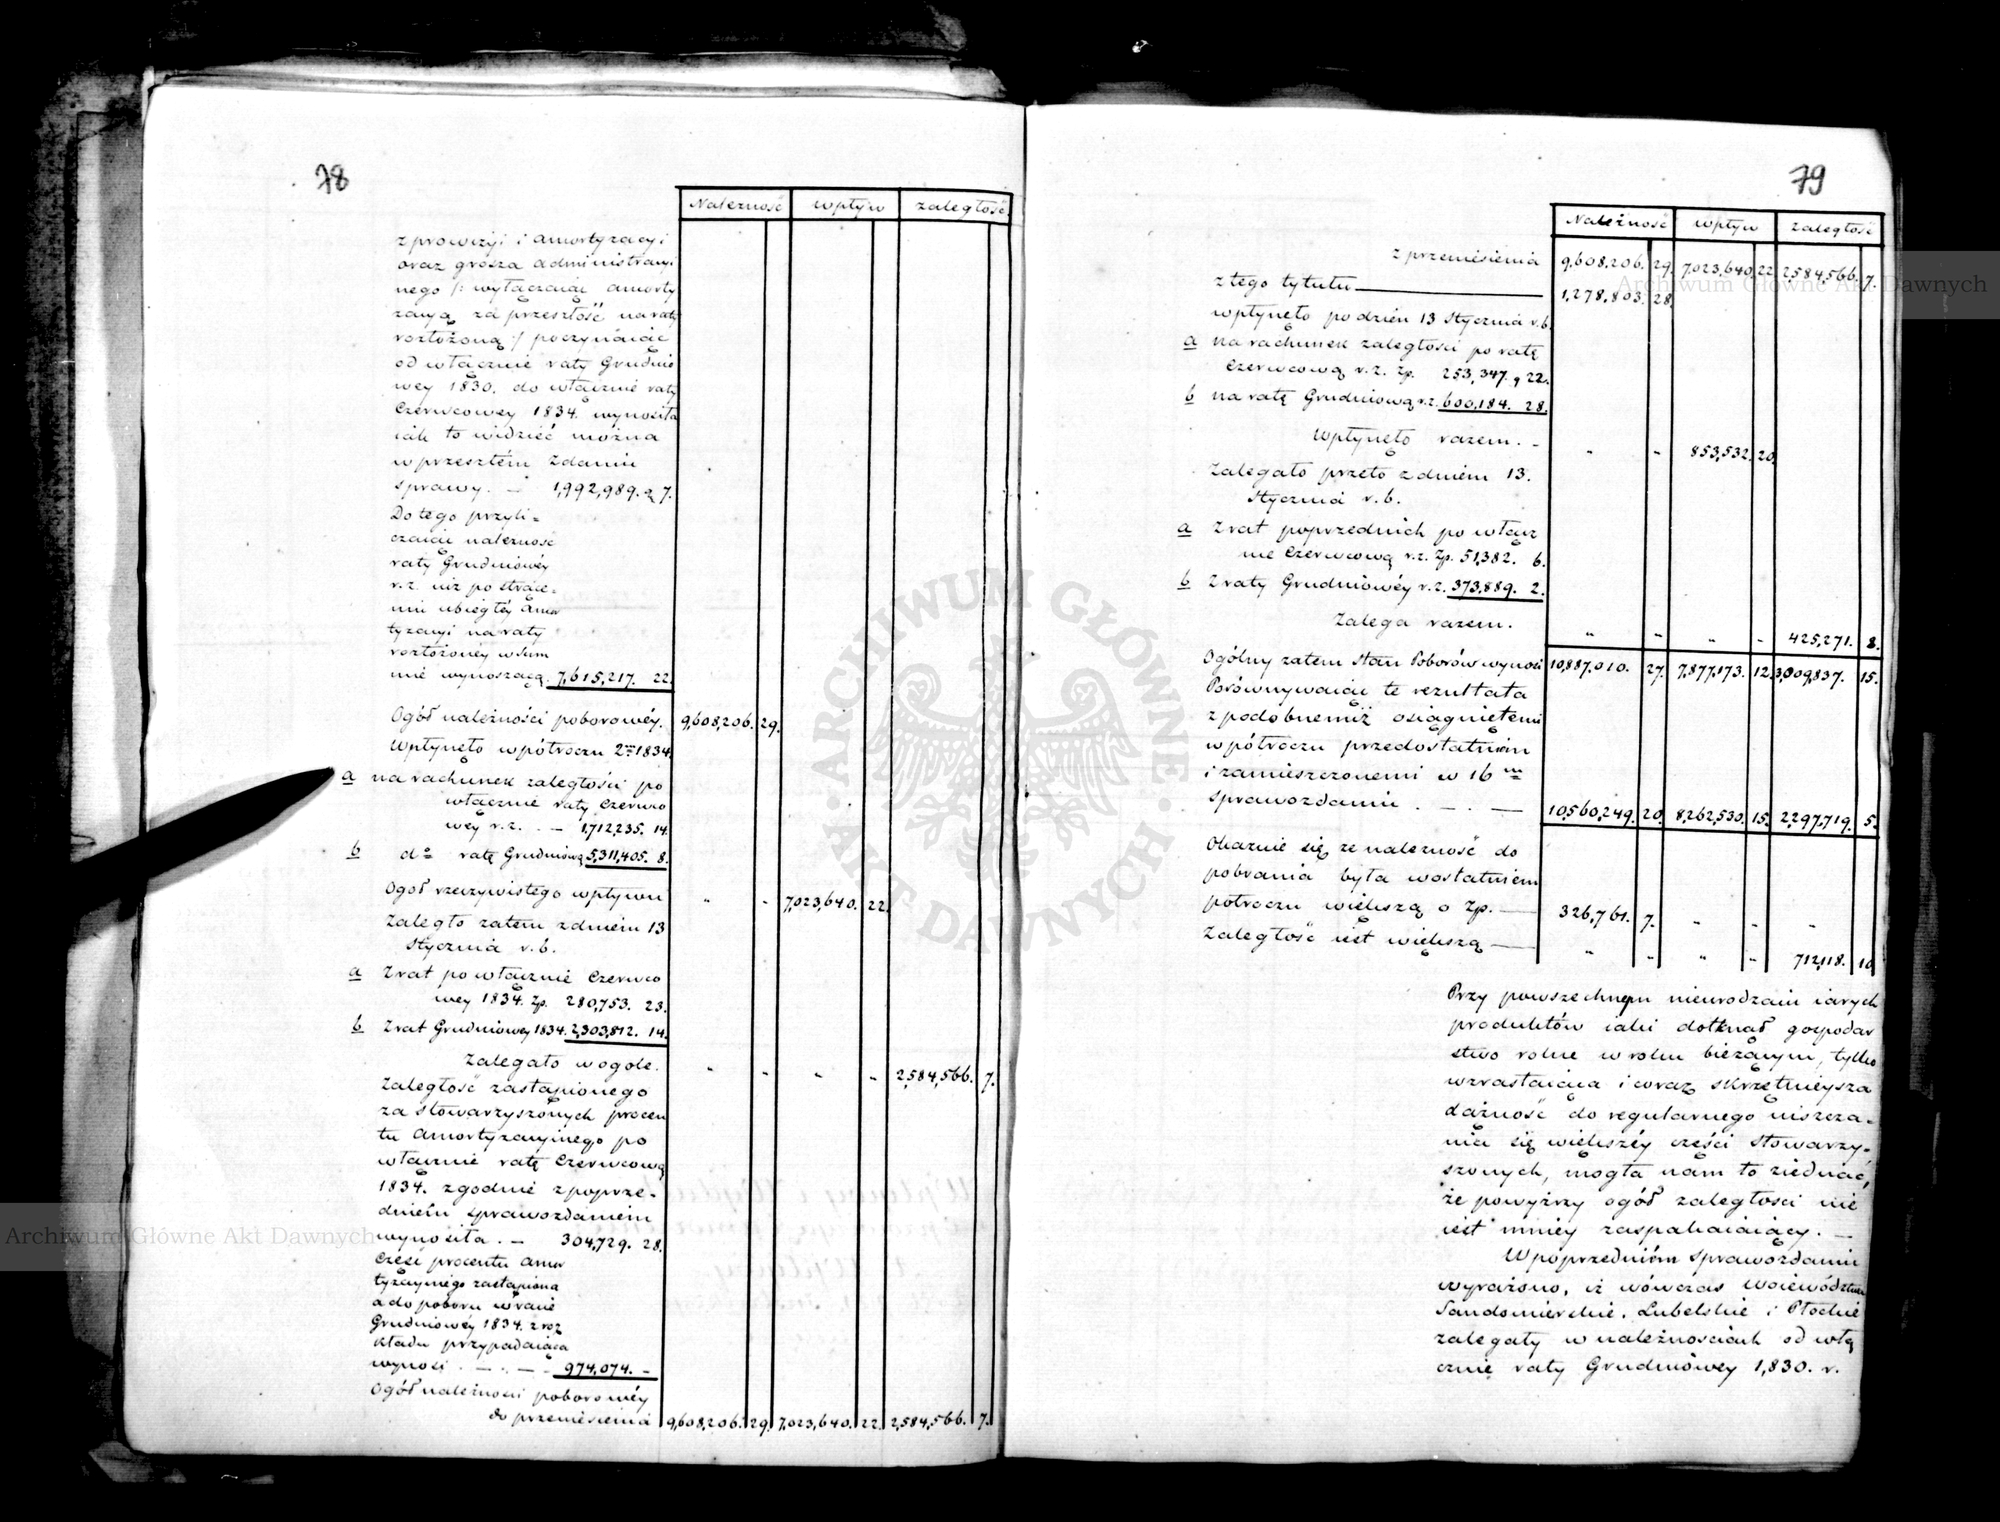 78
Należność wpływ zaległość
z prowizyi i amortyzacyi
oraz grosza administracyi
nego /: wyłączaiąc amorty
zacyą za przeszłość na raty
rozłożoną :/ poczynaiąc
od włącznie raty Grudnio
wey 1830. do włącznie raty
Czerwcowey 1834. wynosiła
iak to widzieć można
w przeszłém zdaniu
sprawy. — 1,992,989. g 7.
Do tego przyli=
czaiąc należność
raty Grudniowéy
r.z. niż po strące=
niu ubiegłéy amor
tyzacyi na raty
rozłożonéy w Sum
mie wynoszącą. 7,615,217. 22.
Ogół należności poborowéy. 9,608,206. 29.
Wpłynęło w półroczu 2m 1834.
a na rachunek zaległości po
włącznie raty Czerwco
wey r.z. . — 1,712,235. 14.
b do ratę Grudniową 5,311,405. 8.
Ogół rzeczywistego wpływu " " 7,023,640. 22.
Zaległo zatem z dniem 13
Stycznia r.b.
a Z rat po włącznie Czerwco
wey 1834. Zp. 280,753. 23.
b Z rat Grudniowey 1834. 2,303,812. 14.
Zalegało w ogóle. " " " " 2,584,566. 7.
Zaległość zastąpionego
za stowarzyszonych procen
tu amortyzacyinego po
włącznie ratę Czerwcową
1834. zgodnie z poprze=
dniém sprawozdaniem
wynosiła. — 304,729. 28.
Część procentu amor
tyzacyinégo zastąpiona
a do poboru w racie
Grudniowéy 1834. z roz
kładu przypadaiąca
wynosi . — . — 974,074. —
Ogół należności poborowéy
do przeniésienia 9,608,206. 29. 7,023,640. 22. 2,584,566. 7.
79
Należność wpływ zaległość
z przeniésienia 9,608,206. 29. 7,023,640. 22. 2,584,566. 7.
z tego tytułu 1,278,803. 28.
wpłynęło po dzień 13 Stycznia r.b.
a na rachunek zaległości po ratę
Czerwcową r.z. Zp. 253,347. g 22.
b na ratę Grudniową r.z. 600,184. 28.
Wpłynęło razem. — " " 853,532. 20.
Zalegało przeto z dniem 13.
Stycznia r.b.
a Z rat poprzednich po włącz
nie Czerwcową r.z. Zp. 51,382. 6.
b Z raty Grudniowéy r.z. 373,889. 2.
Zalega razem. " " " " 425,271. 8.
Ogólny zatem stan Poborów wynosi 10,887,010. 27. 7,877,173. 12. 3,009,837. 15.
Porównywaiąc te rezultata
z podobnemiż osiągniętemi
w półroczu przedostatniém
i zamieszczonemi w 16m
sprawozdaniu . — . — 10,560,249. 20. 8,262,530. 15. 2,297,719. 5.
Okazuie się że należność do
pobrania była w ostatniém
półroczu większą o Zp. — 326,761. 7. " " "
Zaległość iest większą — " " " " 712,118. 10
Przy powszechnym nieurodzaiu iarych
produktów iaki dotknął gospodar
stwo rolne w roku bieżącym, tylko
wzrastaiąca i coraz skrzętnieysza
dążność do regularnego uiszcza=
nia się większéy części stowarzy=
szonych, mogła nam to ziednać,
że powyższy ogół zaległości nie
iest mniéy zaspakaiaiący. —
W poprzedniém sprawozdaniu
wyrażono, iż wówczas Województwa
Sandomierskie, Lubelskie i Płockie
zalegały w należnościach od włą
cznie raty Grudniówey 1,830. r.
ARCHIWUM GŁÓWNE AKT DAWNYCH
Archiwum Główne Akt Dawnych
Archiwum Główne Akt Dawnych